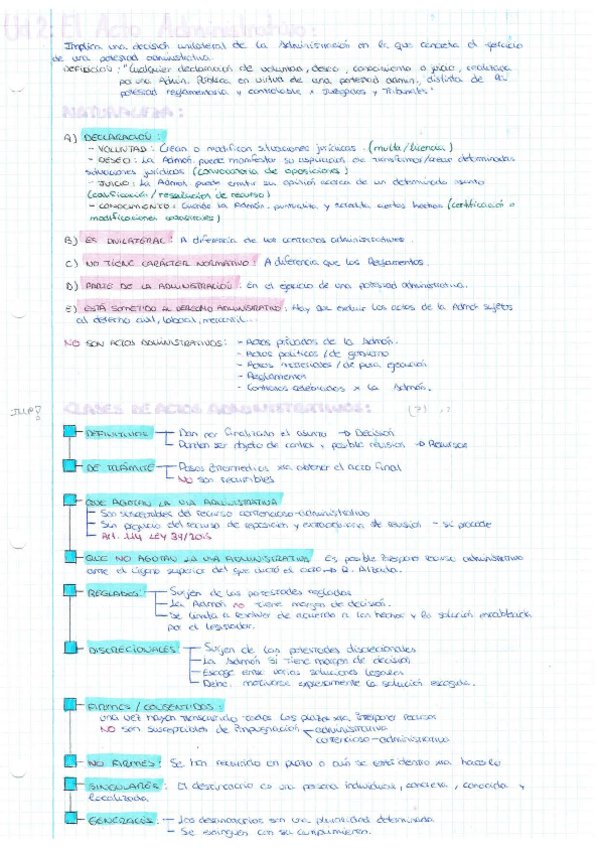 Ud 2: El Acto Administrativo:
Implica una decisión unilateral de la Administración en la que concreta el ejercicio
de una potestad administrativa.
DEFINICIÓN: "Cualquier declaración de voluntad, deseo, conocimiento o juicio, realizada
por una Admin. Pública en virtud de una potestad admin., distinta de la
potestad reglamentaria y controlable x Juzgados y Tribunales"
NATURALEZA:
A) DECLARACIÓN:
- VOLUNTAD: Crean o modifican situaciones jurídicas. (multa/licencia)
- DESEO: La Admón. puede manifestar su aspiración de transformar/crear determinadas
situaciones jurídicas (convocatoria de oposiciones)
- JUICIO: La Admón. puede emitir su opinión acerca de un determinado asunto
(calificación / resolución de recurso)
- CONOCIMIENTO: Cuando la Admón. puntualiza y acredita ciertos hechos (certificación o
modificaciones catastrales)
B) ES UNILATERAL: A diferencia de los contratos administrativos.
C) NO TIENE CARÁCTER NORMATIVO: A diferencia que los Reglamentos.
D) PARTE DE LA ADMINISTRACIÓN: En el ejercicio de una potestad administrativa.
E) ESTÁ SOMETIDO AL DERECHO ADMINISTRATIVO: Hay que excluir los actos de la Admón sujetos
al derecho civil, laboral, mercantil...
NO SON ACTOS ADMINISTRATIVOS: - Actos privados de la Admón.
- Actos políticos / de gobierno
- Actos materiales / de pura ejecución
- Reglamentos
- Contratos celebrados x la Admón.
IMP! CLASES DE ACTOS ADMINISTRATIVOS: (?)
DEFINITIVOS - Dan por finalizado el asunto → Decisión
- Pueden ser objeto de control y posible revisión → Recursos
DE TRÁMITE - Pasos intermedios xra obtener el acto final
- NO son recurribles
QUE AGOTAN LA VÍA ADMINISTRATIVA
- Son susceptibles del recurso contencioso-administrativo
- Sin perjuicio del recurso de reposición y extraordinario de revisión - si procede
- Art. 114 LEY 39/2015
QUE NO AGOTAN LA VÍA ADMINISTRATIVA Es posible interponer recurso administrativo
ante el órgano superior del que dictó el acto → R. Alzada.
REGLADOS: - Surgen de las potestades regladas
- La Admón no tiene margen de decisión.
- Se limita a resolver de acuerdo a los hechos y la solución establecida
por el legislador.
DISCRECIONALES: - Surgen de las potestades discrecionales
- La Admón sí tiene margen de decisión
- Escoge entre varias soluciones legales
- Debe motivarse expresamente la solución escogida.
FIRMES / CONSENTIDOS:
una vez hayan transcurrido todos los plazos xra interponer recursos
NO son susceptibles de impugnación administrativa
contencioso-administrativo
NO FIRMES: Se han recurrido en plazo o aún se está dentro xra hacerlo
SINGULARES: El destinatario es una persona individual, concreta, conocida y
localizada.
GENERALES: - Los destinatarios son una pluralidad determinada
- Se extinguen con su cumplimiento.